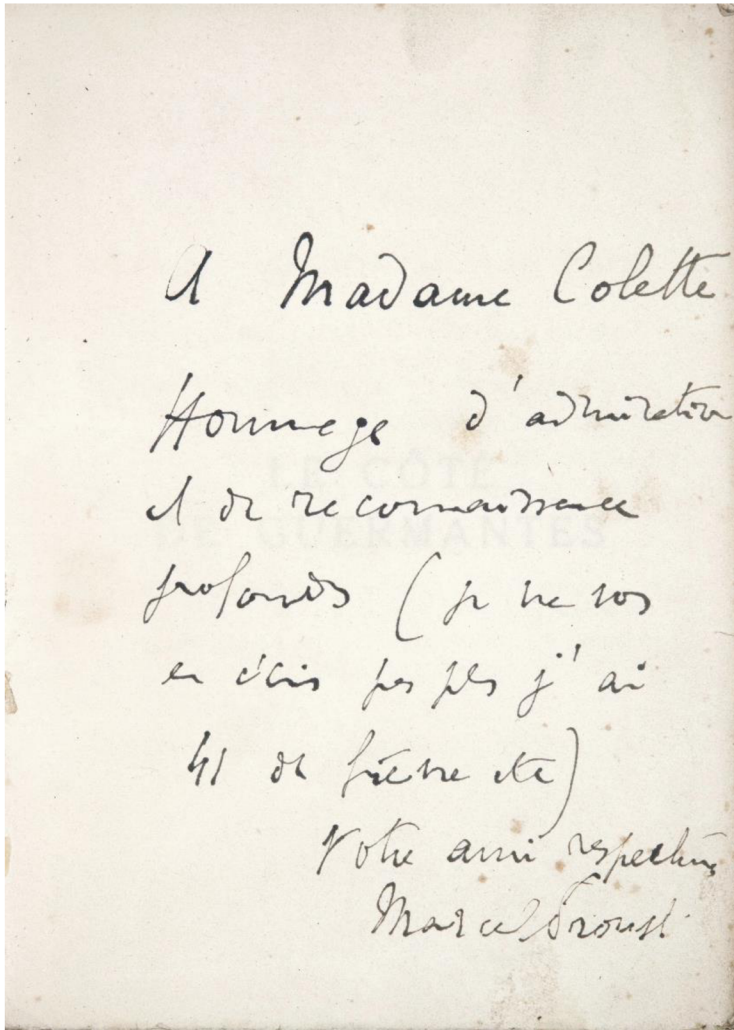 A Madame Colette
Hommage d'admiration
et de reconnaissance
profondes (je ne vous
en écris pas plus j'ai
41 de fièvre etc)
Votre ami respectueux
Marcel Proust
LE CÔTÉ
DE GUERMANTES